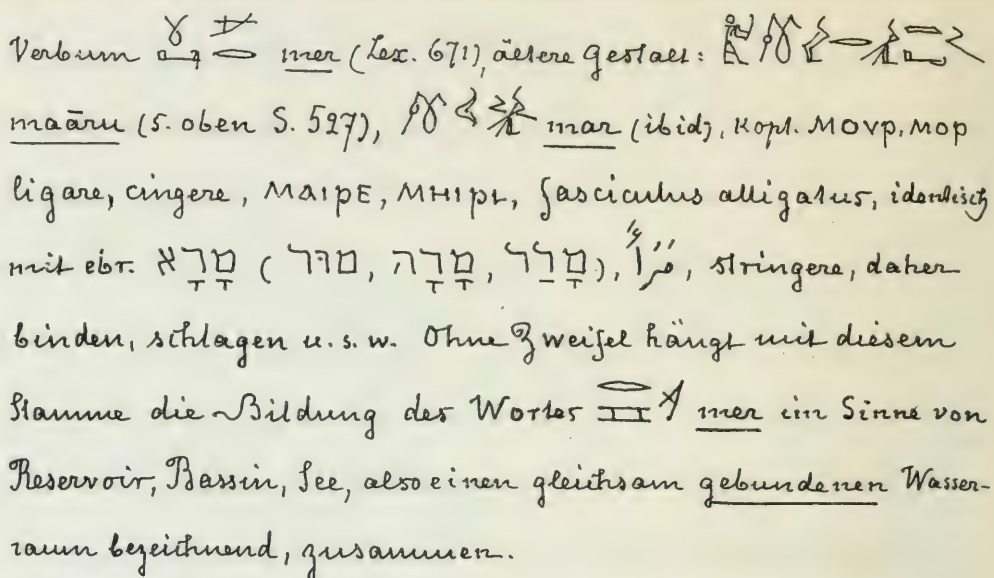 Verbum mer (Lex. 671), ältere Gestalt:
maāru (s. oben S. 527), mar (ibid), Kopt. ⲙⲟⲩⲣ, ⲙⲟⲣ
ligare, cingere, ⲙⲁⲓⲣⲉ, ⲙⲏⲓⲣⲓ, fasciculus alligatus, identisch
mit ebr. מָרָא (מוּר, מָרָה, מָרַר), stringere, daher
binden, schlagen u. s. w. Ohne Zweifel hängt mit diesem
Stamme die Bildung des Wortes mer im Sinne von
Reservoir, Bassin, See, also einen gleichsam gebundenen Wasser-
raum bezeichnend, zusammen.